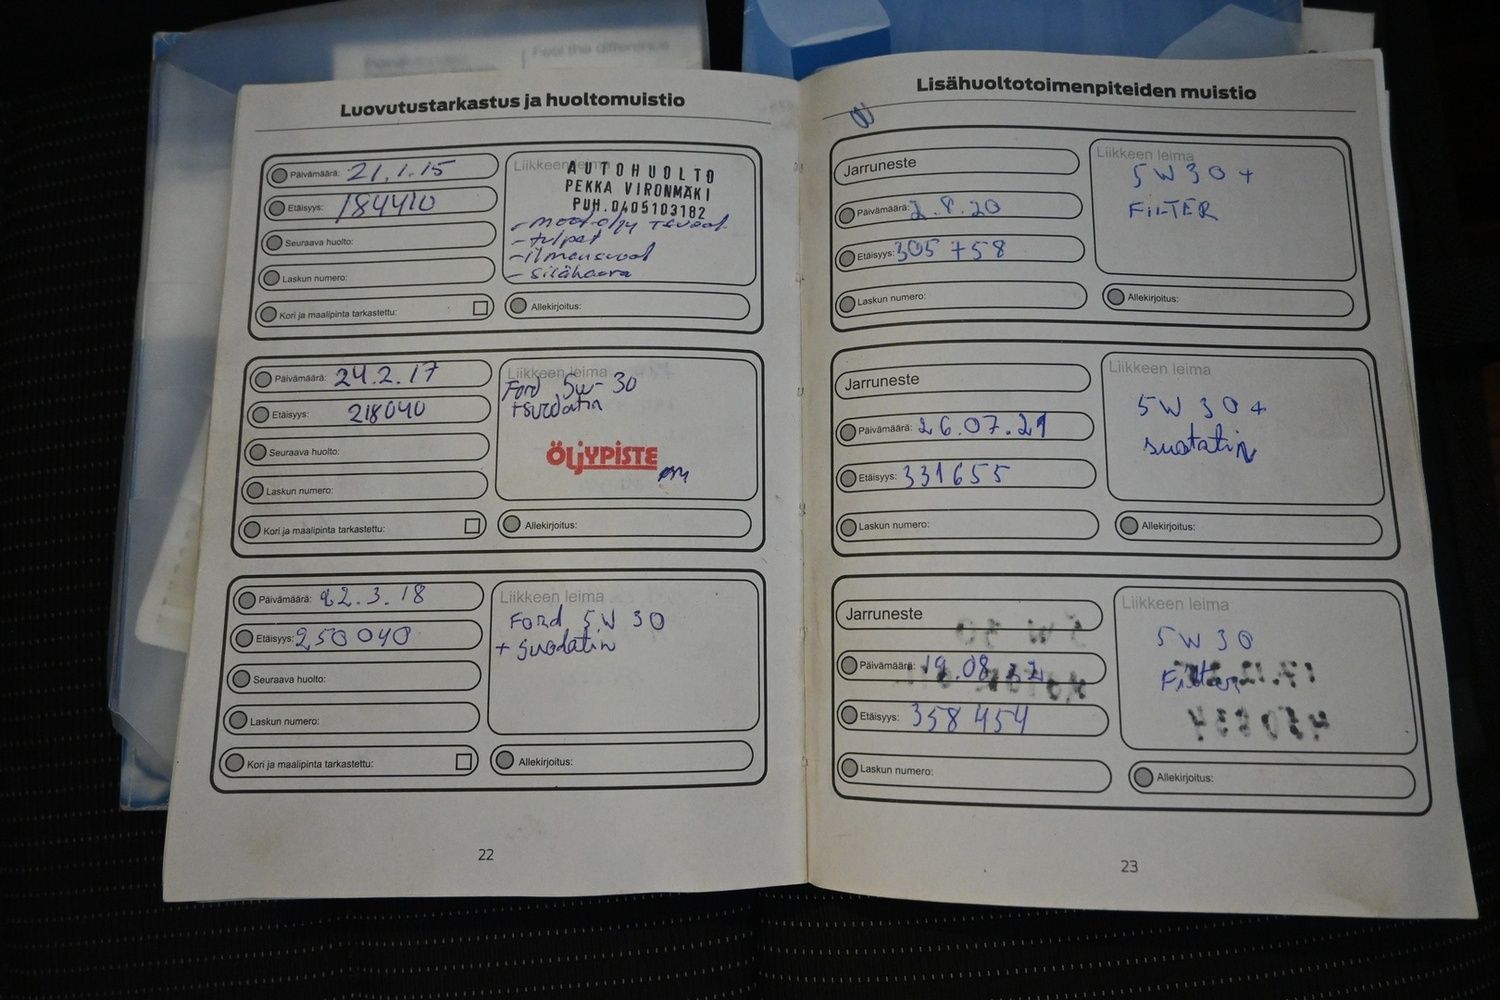 Feel the difference
Luovutustarkastus ja huoltomuistio
Päivämäärä: 21.1.15
Etäisyys: 184410
Seuraava huolto:
Laskun numero:
Kori ja maalipinta tarkastettu:
Liikkeen leima
AUTOHUOLTO
PEKKA VIRONMÄKI
PUH.0405103182
- tulpat
Allekirjoitus:
Päivämäärä: 24.2.17
Etäisyys: 218040
Seuraava huolto:
Laskun numero:
Kori ja maalipinta tarkastettu:
Liikkeen leima
Ford 5w-30
+suodatin
ÖLJYPISTE
Allekirjoitus:
Päivämäärä: 22.3.18
Etäisyys: 250040
Seuraava huolto:
Laskun numero:
Kori ja maalipinta tarkastettu:
Liikkeen leima
Ford 5W 30
+ suodatin
Allekirjoitus:
22
Lisähuoltotoimenpiteiden muistio
Jarruneste
Päivämäärä: 2.8.20
Etäisyys: 305 758
Laskun numero:
Liikkeen leima
5W30+
FILTER
Allekirjoitus:
Jarruneste
Päivämäärä: 26.07.21
Etäisyys: 331655
Laskun numero:
Liikkeen leima
5W30+
suotatin
Allekirjoitus:
Jarruneste
Päivämäärä: 19.08.22
Etäisyys: 358454
Laskun numero:
Liikkeen leima
5W30
Filter
Allekirjoitus:
23